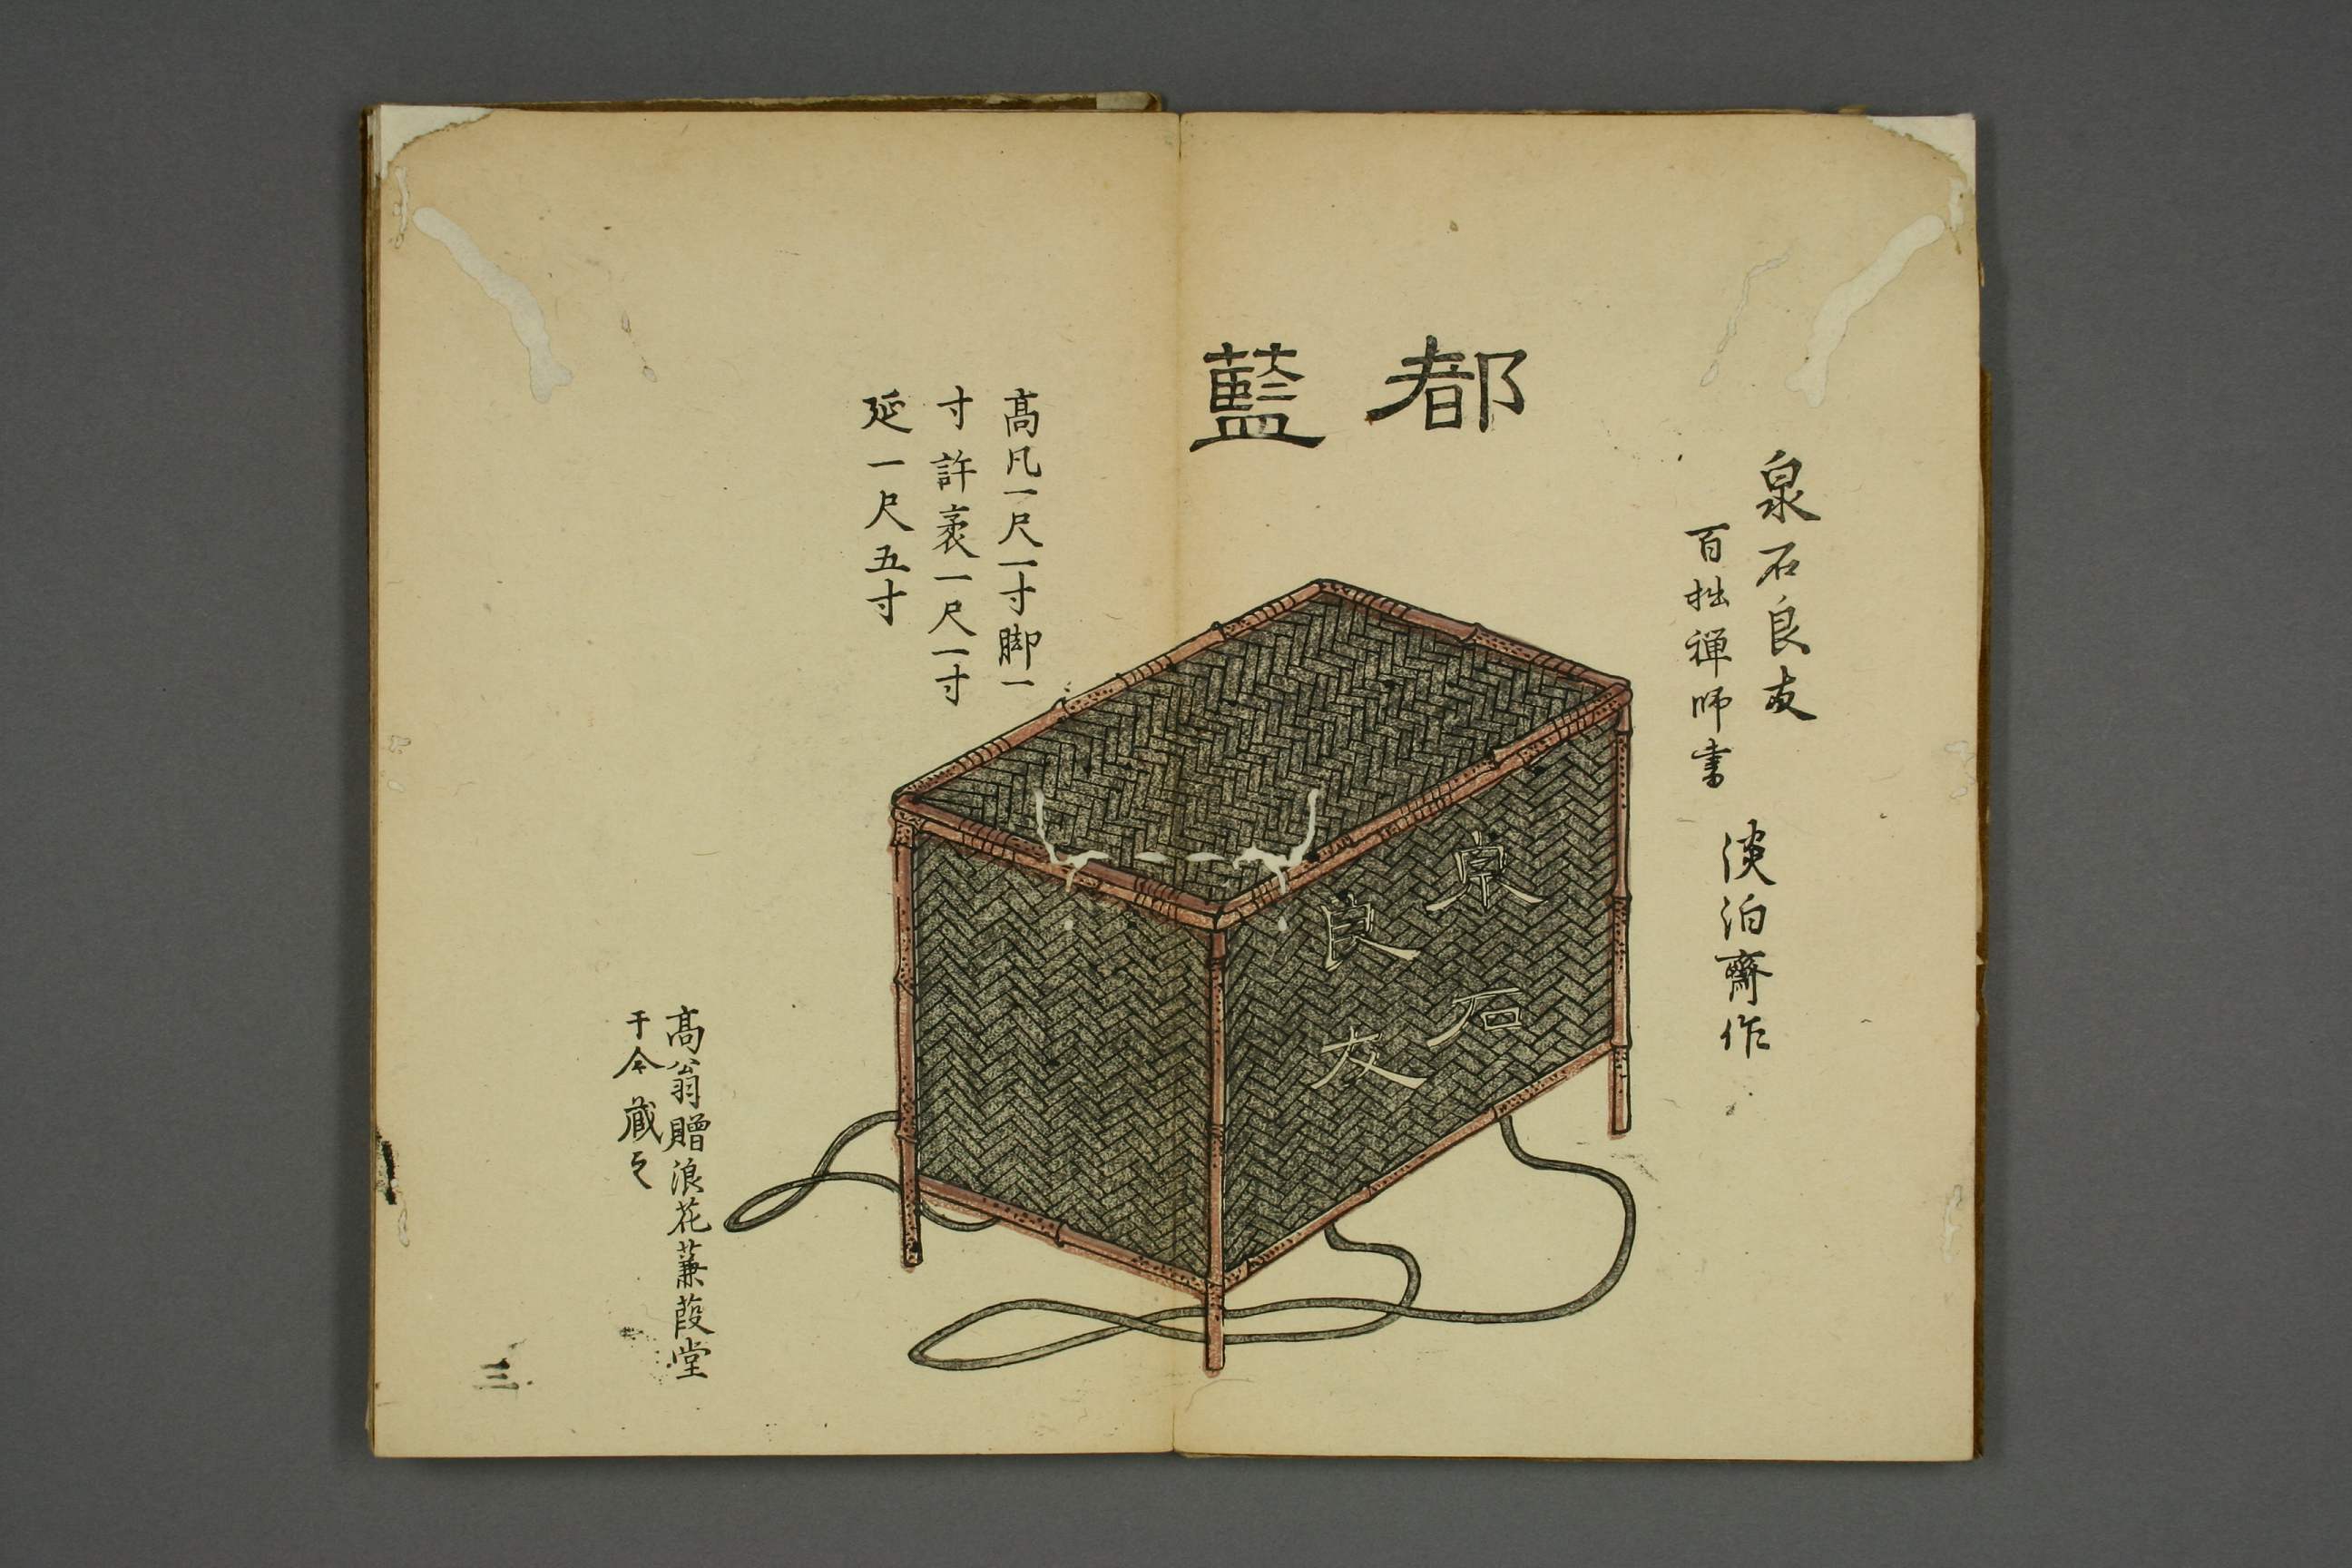 泉石良友
百拙禅師書
淡泊齋作
都藍
泉石
良友
高凡一尺一寸脚一
寸許袤一尺一寸
延一尺五寸
高翁贈浪花蒹葭堂
于今蔵之
三